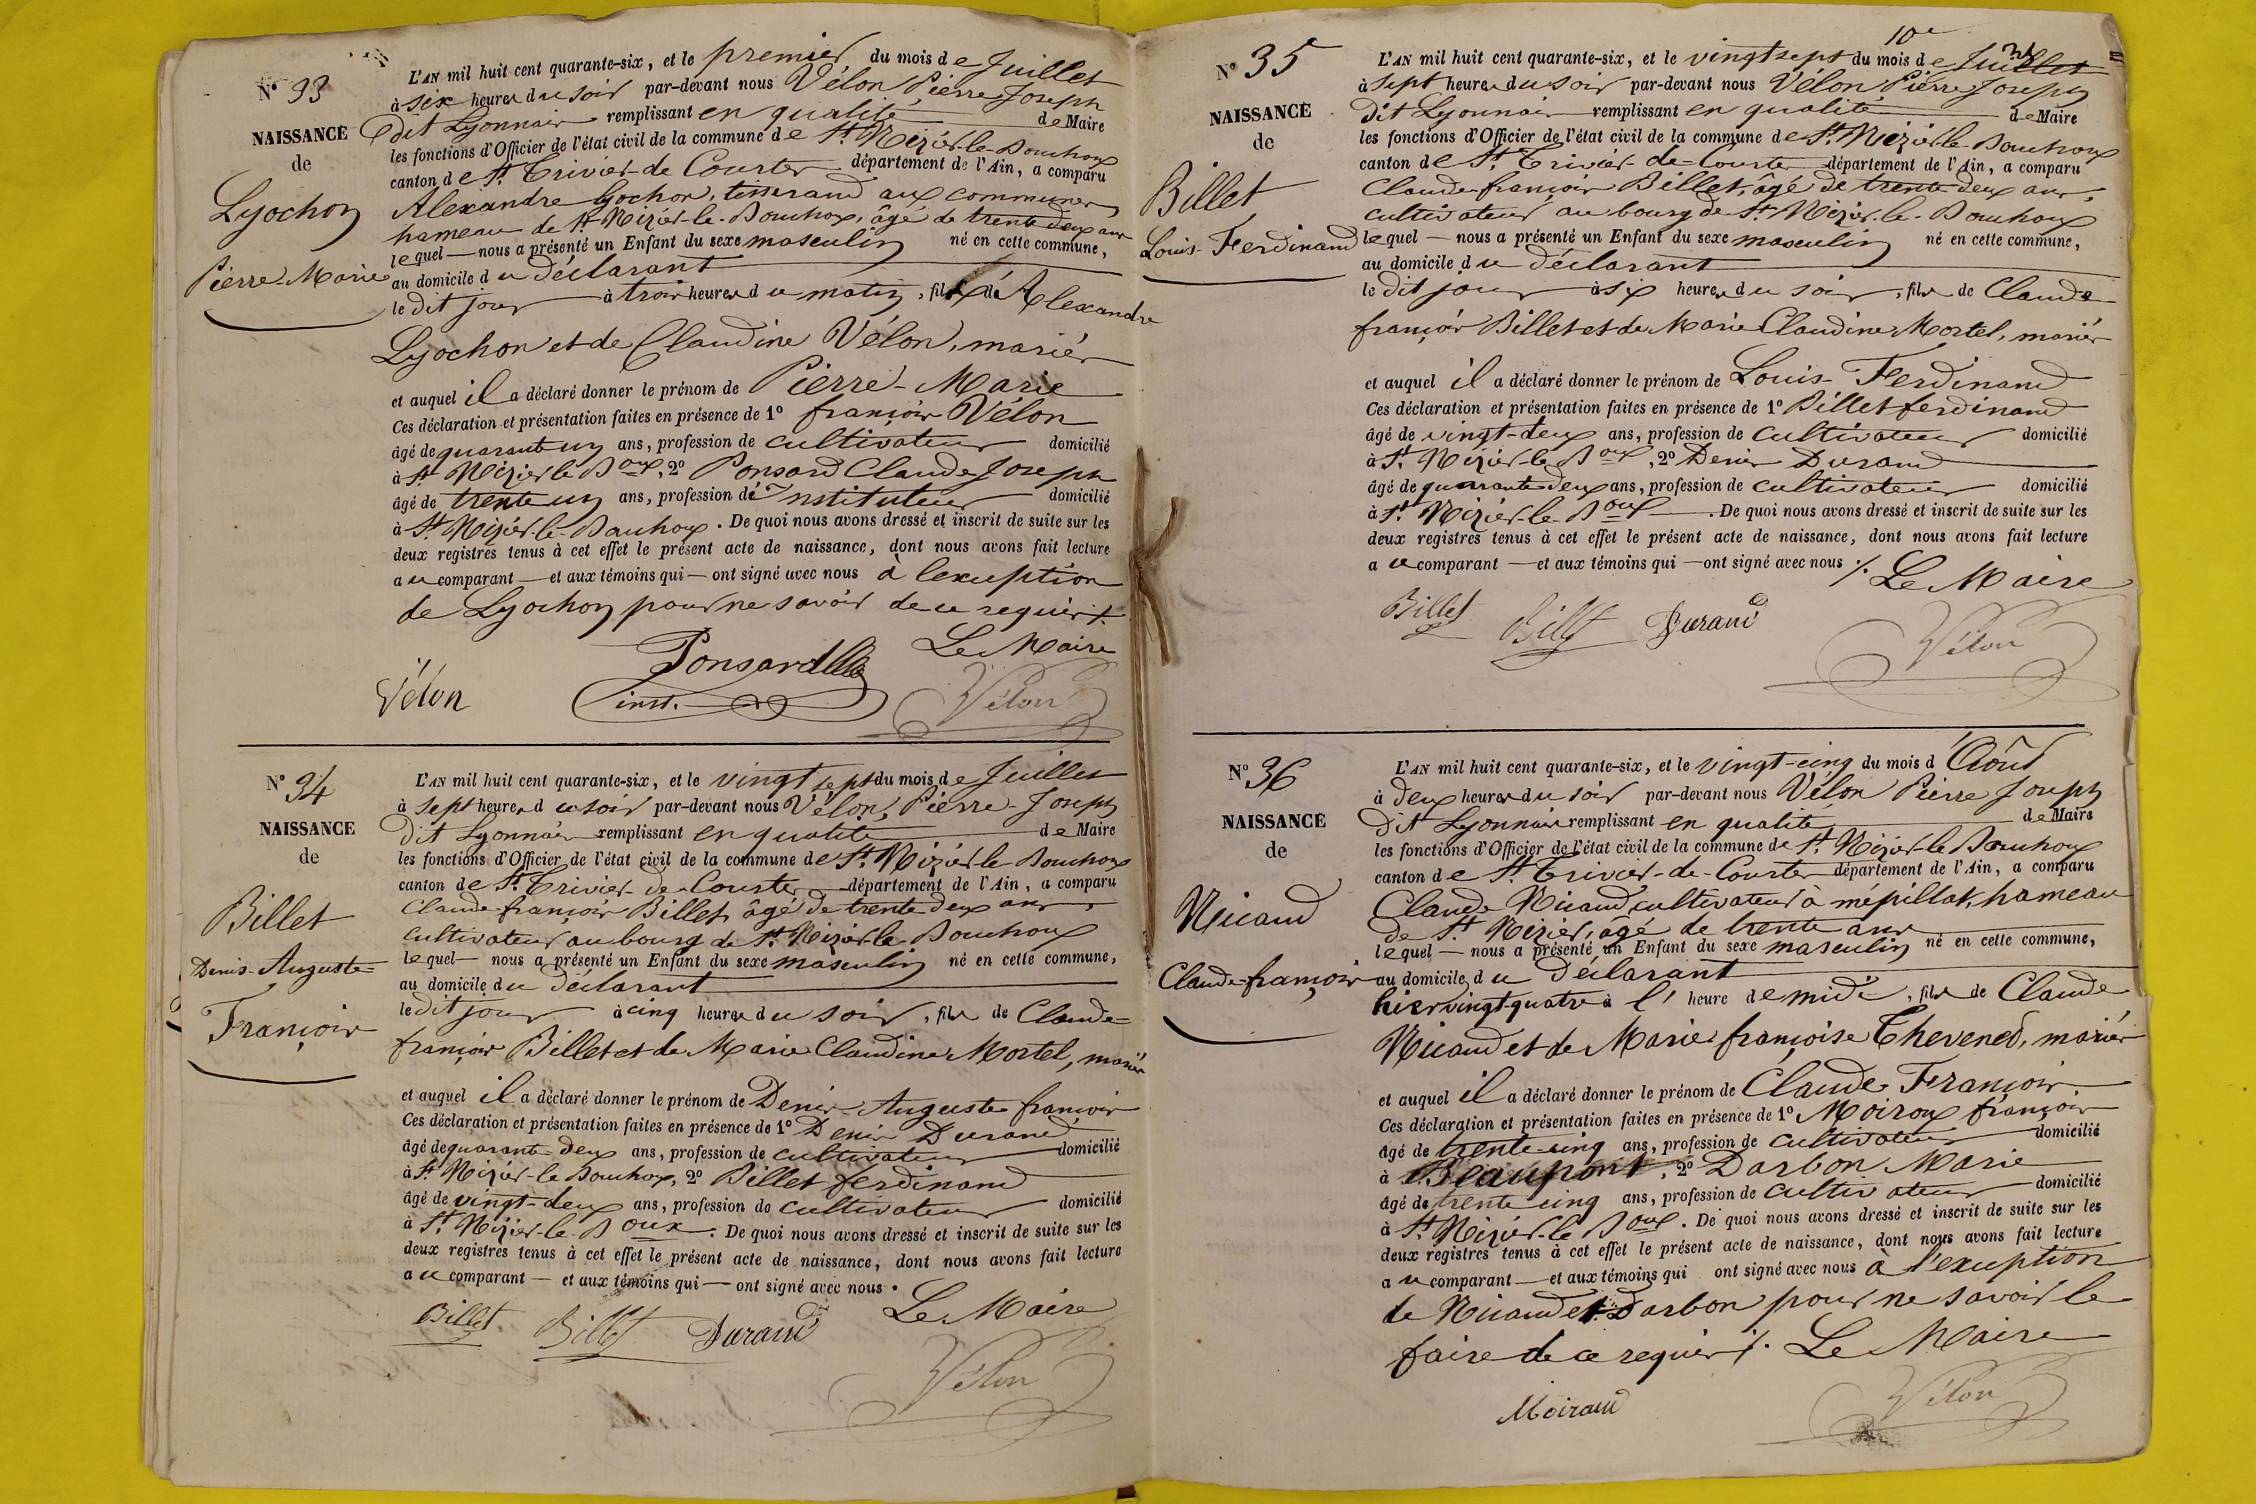 N° 33
NAISSANCE
de
Lyochon
Pierre-Marie
L'AN mil huit cent quarante-six, et le premier du mois de Juillet
à six heures du soir par-devant nous Vélon, Pierre Joseph
dit Lyonnais remplissant en qualité de Maire
les fonctions d'Officier de l'état civil de la commune de St. Nizier-le-Bouchoux
canton de St. Trivier-de-Courtes département de l'Ain, a comparu
Alexandre Lyochon, tisserand aux communes,
hameau de St. Nizier-le-Bouchoux, âgé de trente deux ans
lequel — nous a présenté un Enfant du sexe masculin né en cette commune,
au domicile du déclarant
le dit jour à trois heures du matin, fils de Alexandre
Lyochon et de Claudine Vélon, mariés
et auquel il a déclaré donner le prénom de Pierre-Marie
Ces déclaration et présentation faites en présence de 1° françois Vélon
âgé de quarant un ans, profession de cultivateur domicilié
à St. Nizier le Boux, 2° Ponsard Claude Joseph
âgé de trente un ans, profession de Instituteur domicilié
à St. Nizier-le-Bouchoux. De quoi nous avons dressé et inscrit de suite sur les
deux registres tenus à cet effet le présent acte de naissance, dont nous avons fait lecture
au comparant — et aux témoins qui — ont signé avec nous à l'exception
de Lyochon pour ne savoir de ce requis ⁒.
Le Maire
Vélon
Ponsard
inst.
Vélon
N° 34
NAISSANCE
de
Billet
Denis-Auguste
François
L'AN mil huit cent quarante-six, et le vingt sept du mois de Juillet
à sept heures du soir par-devant nous Vélon, Pierre-Joseph
dit Lyonnais remplissant en qualité de Maire
les fonctions d'Officier de l'état civil de la commune de St. Nizier-le-Bouchoux
canton de St. Trivier-de-Courtes département de l'Ain, a comparu
Claude-françois Billet, âgé de trente deux ans,
cultivateur au bourg de St. Nizier-le-Bouchoux
lequel — nous a présenté un Enfant du sexe masculin né en cette commune,
au domicile du déclarant
le dit jour à cinq heures du soir, fils de Claude-
françois Billet et de Marie Claudine Mortel, mariés
et auquel il a déclaré donner le prénom de Denis-Auguste françois
Ces déclaration et présentation faites en présence de 1° Denis Durand
âgé de quarante deux ans, profession de cultivateur domicilié
à St. Nizier-le Bouchoux, 2° Billet ferdinand
âgé de vingt-deux ans, profession de cultivateur domicilié
à St. Nizier-le-Boux. De quoi nous avons dressé et inscrit de suite sur les
deux registres tenus à cet effet le présent acte de naissance, dont nous avons fait lecture
au comparant — et aux témoins qui — ont signé avec nous.
Le Maire
Billet Billet Durand
Vélon
10e
N° 35
NAISSANCE
de
Billet
Louis-Ferdinand
L'AN mil huit cent quarante-six, et le vingt sept du mois de Juillet
à sept heures du soir par-devant nous Vélon Pierre Joseph
dit Lyonnais remplissant en qualité de Maire
les fonctions d'Officier de l'état civil de la commune de St. Nizier-le-Bouchoux
canton de St. Trivier-de-Courtes département de l'Ain, a comparu
Claude françois Billet, âgé de trente deux ans,
cultivateur au bourg de St. Nizier-le-Bouchoux
lequel — nous a présenté un Enfant du sexe masculin né en cette commune,
au domicile du déclarant
le dit jour à six heures du soir, fils de Claude
françois Billet et de Marie Claudine Mortel, mariés
et auquel il a déclaré donner le prénom de Louis-Ferdinand
Ces déclaration et présentation faites en présence de 1° Billet ferdinand
âgé de vingt-deux ans, profession de cultivateur domicilié
à St. Nizier-le Boux, 2° Denis Durand
âgé de quarante deux ans, profession de cultivateur domicilié
à St. Nizier-le-Boux. De quoi nous avons dressé et inscrit de suite sur les
deux registres tenus à cet effet le présent acte de naissance, dont nous avons fait lecture
au comparant — et aux témoins qui — ont signé avec nous ⁒.
Le Maire
Billet Billet Durand
Vélon
N° 36
NAISSANCE
de
Nicaud
Claude-françois
L'AN mil huit cent quarante-six, et le vingt-cinq du mois d'Août
à deux heures du soir par-devant nous Vélon Pierre Joseph
dit Lyonnais remplissant en qualité de Maire
les fonctions d'Officier de l'état civil de la commune de St. Nizier-le Bouchoux
canton de St. Trivier-de-Courtes département de l'Ain, a comparu
Claude Nicaud, cultivateur à mépillat, hameau
de St. Nizier, âgé de trente ans
lequel — nous a présenté un Enfant du sexe masculin né en cette commune,
au domicile du déclarant
hier vingt-quatre à l'heure de midi, fils de Claude
Nicaud et de Marie françoise Thevened, mariés
et auquel il a déclaré donner le prénom de Claude François
Ces déclaration et présentation faites en présence de 1° Moiroux françois
âgé de trente-cinq ans, profession de cultivateur domicilié
à Beaupont, 2° Darbon Marie
âgé de trente cinq ans, profession de cultivateur domicilié
à St. Nizier-le Boux. De quoi nous avons dressé et inscrit de suite sur les
deux registres tenus à cet effet le présent acte de naissance, dont nous avons fait lecture
au comparant — et aux témoins qui ont signé avec nous à l'exception
de Nicaud et Darbon pour ne savoir le
faire de ce requis ⁒. Le Maire
Moiroud
Vélon